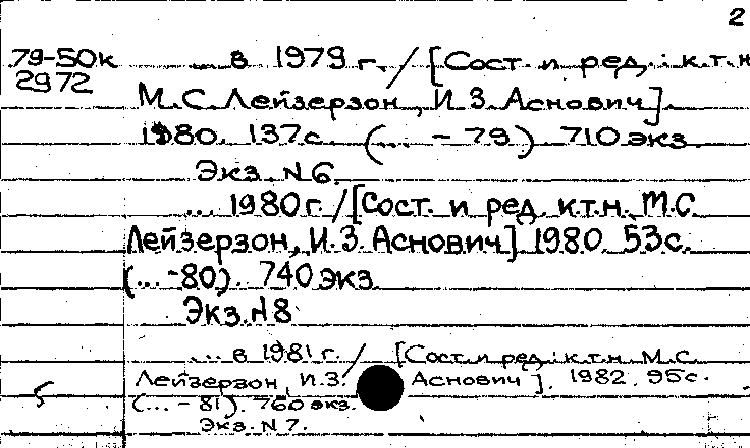 2
79-50к ... в 1979 г. / [Сост. и ред.: к.т.н
2972
М.С. Лейзерзон, И.З. Аснович].
1980. 137с. (... - 79). 710 экз
Экз. N 6.
... 1980 г. / [Сост. и ред. к.т.н. М.С.
Лейзерзон, И.З. Аснович] 1980. 53с.
(... -80). 740 экз
Экз. N 8
... в 1981 г. / [Сост. и ред.: к.т.н. М.С.
Лейзерзон, И.З. Аснович]. 1982. 95с.
5
(... - 81). 760 экз.
Экз. N 7.